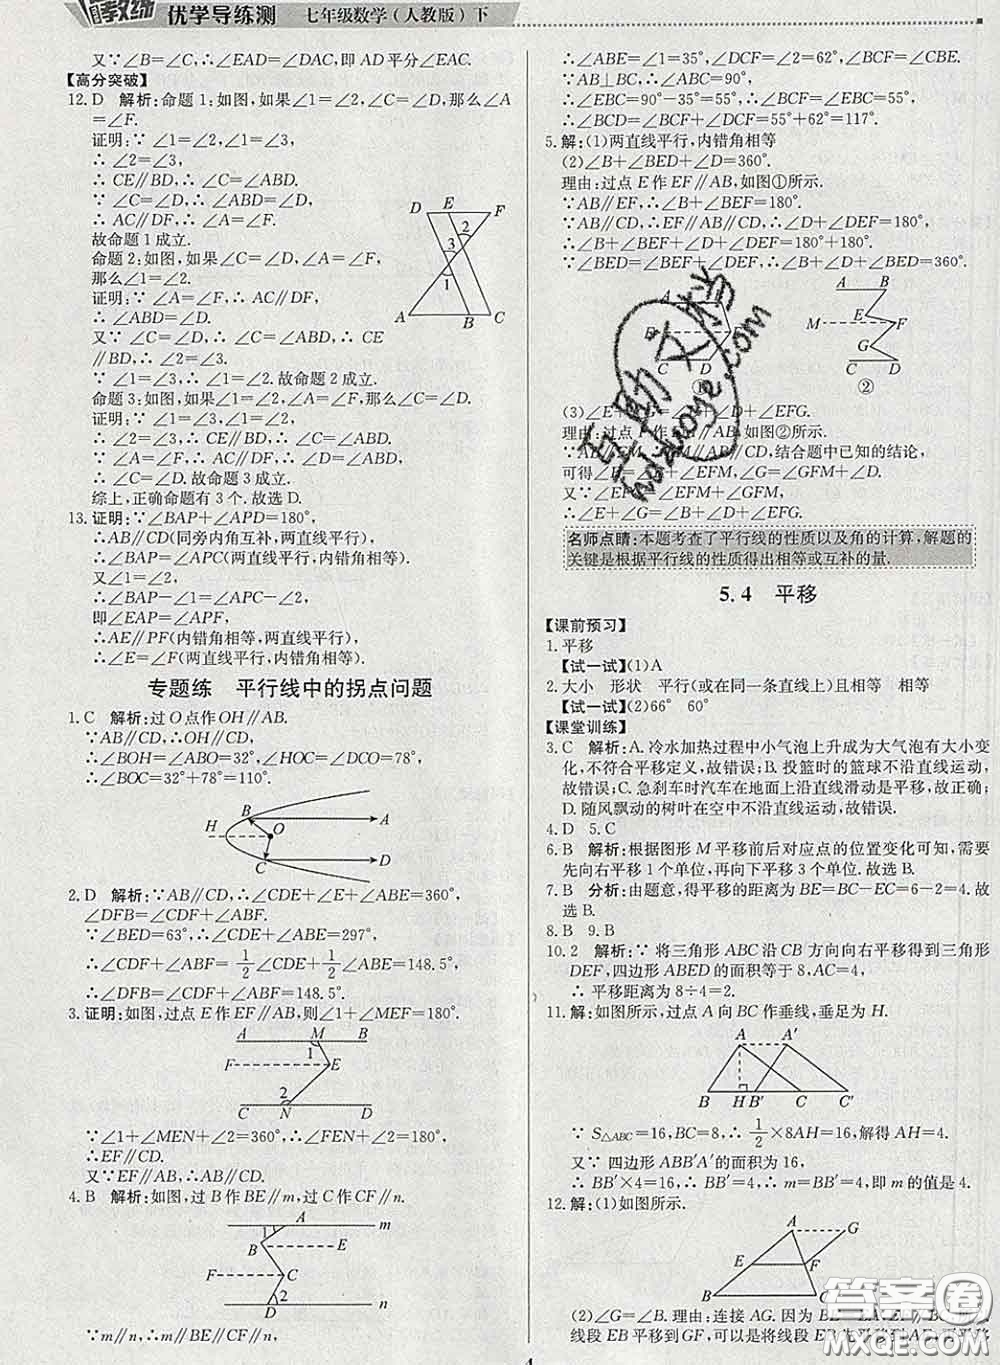 教练 优学导练测 七年级数学(人教版)下
又∵∠B=∠C,∴∠EAD=∠DAC,即 AD 平分∠EAC.
【高分突破】
12. D 解析:命题 1:如图,如果∠1=∠2,∠C=∠D,那么∠A
=∠F.
证明:∵ ∠1=∠2,∠1=∠3,
∴ ∠2=∠3,
∴ CE∥BD,∴ ∠C=∠ABD.
∵ ∠C=∠D,∴ ∠ABD=∠D,
∴ AC∥DF,∴ ∠A=∠F.
故命题 1 成立.
命题 2:如图,如果∠C=∠D,∠A=∠F,
那么∠1=∠2.
证明:∵ ∠A=∠F,∴ AC∥DF,
∴ ∠ABD=∠D.
又∵ ∠C=∠D,∴ ∠C=∠ABD,∴ CE
∥BD,∴ ∠2=∠3.
∵ ∠1=∠3,∴ ∠1=∠2.故命题 2 成立.
命题 3:如图,如果∠1=∠2,∠A=∠F,那么∠C=∠D.
证明:∵ ∠1=∠3,∠1=∠2,
∴ ∠2=∠3,∴ CE∥BD,∴ ∠C=∠ABD.
∵ ∠A=∠F,∴ AC∥DF,∴ ∠D=∠ABD,
∴ ∠C=∠D.故命题 3 成立.
综上,正确命题有 3 个.故选 D.
D E F
2
3
1
A B C
13. 证明:∵∠BAP+∠APD=180°,
∴AB∥CD(同旁内角互补,两直线平行),
∴∠BAP=∠APC(两直线平行,内错角相等).
又∵∠1=∠2,
∴∠BAP-∠1=∠APC-∠2,
即∠EAP=∠APF,
∴AE∥PF(内错角相等,两直线平行),
∴∠E=∠F(两直线平行,内错角相等).
专题练 平行线中的拐点问题
1. C 解析:过 O 点作 OH∥AB.
∵AB∥CD,∴OH∥CD,
∴∠BOH=∠ABO=32°,∠HOC=∠DCO=78°,
∴∠BOC=32°+78°=110°.
B A
H O
C D
2. D 解析:∵AB∥CD,∴∠CDE+∠E+∠ABE=360°,
∠DFB=∠CDF+∠ABF.
∵∠BED=63°,∴∠CDE+∠ABE=297°,
∴∠CDF+∠ABF=1/2∠CDE+1/2∠ABE=148.5°,
∴∠DFB=∠CDF+∠ABF=148.5°.
3. 证明:如图,过点 E 作 EF∥AB,则∠1+∠MEF=180°.
A M B
1
F E
2
C N D
∵∠1+∠MEN+∠2=360°,∴∠FEN+∠2=180°,
∴EF∥CD.
又∵EF∥AB,∴AB∥CD.
4. B 解析:如图,过 B 作 BE∥m,过 C 作 CF∥n.
A m
1
B E
F C
2
D n
∵m∥n,∴m∥BE∥CF∥n,
∴∠ABE=∠1=35°,∠DCF=∠2=62°,∠BCF=∠CBE.
∵AB⊥BC,∴∠ABC=90°,
∴∠EBC=90°-35°=55°,∴∠BCF=∠EBC=55°,
∴∠BCD=∠BCF+∠DCF=55°+62°=117°.
5. 解:(1)两直线平行,内错角相等
(2)∠B+∠BED+∠D=360°.
理由:过点 E 作 EF∥AB,如图①所示.
∵AB∥EF,∴∠B+∠BEF=180°.
∵AB∥CD,∴EF∥CD,∴∠D+∠DEF=180°,
∴∠B+∠BEF+∠D+∠DEF=180°+180°.
∵∠BED=∠BEF+∠DEF,∴∠B+∠D+∠BED=360°.
C D
①
A B
M E F
G
C D
②
(3)∠E+∠G=∠B+∠D+∠EFG.
理由:过点 F 作 FM∥AB,如图②所示.
∵AB∥FM,∴FM∥AB∥CD,结合题中已知的结论,
可得∠E=∠B+∠EFM,∠G=∠GFM+∠D.
又∵∠EFG=∠EFM+∠GFM,
∴∠E+∠G=∠B+∠D+∠EFG.
名师点睛:本题考查了平行线的性质以及角的计算,解题的
关键是根据平行线的性质得出相等或互补的量.
5.4 平移
【课前预习】
1. 平移
【试一试】(1)A
2. 大小 形状 平行(或在同一条直线上)且相等 相等
【试一试】(2)66° 60°
【课堂训练】
3. C 解析:A. 冷水加热过程中小气泡上升成为大气泡有大小变
化,不符合平移定义,故错误;B. 投篮时的篮球不沿直线运动,
故错误;C. 急刹车时汽车在地面上沿直线滑动是平移,故正确;
D. 随风飘动的树叶在空中不沿直线运动,故错误.
4. D 5. C
6. B 解析:根据图形 M 平移前后对应点的位置变化可知,需要
先向右平移 1 个单位,再向下平移 3 个单位.故选 B.
7. B 分析:由题意,得平移的距离为 BE=BC-EC=6-2=4. 故
选 B.
8. B 9. B
10. 2 解析:∵ 将三角形 ABC 沿 CB 方向向右平移得到三角形
DEF,四边形 ABED 的面积等于 8,AC=4,
∴ 平移距离为 8÷4=2.
11. 解:如图所示,过点 A 向 BC 作垂线,垂足为 H.
A A′
B H B′ C C′
∵ S△ABC=16,BC=8,∴ 1/2×8AH=16,解得 AH=4.
又∵ 四边形 ABB′A′的面积为 16,
∴ BB′×4=16,∴ BB′=4,∴ m=BB′=4,即 m 的值是 4.
12. 解:(1)如图所示.
A G
E F
B C
(2)∠G=∠B. 理由:连接 AG. 因为
线段 EB 平移到 GF,可以是将线段
互助文档
huzhuoye.com
答案圈
MXQE.COM
4